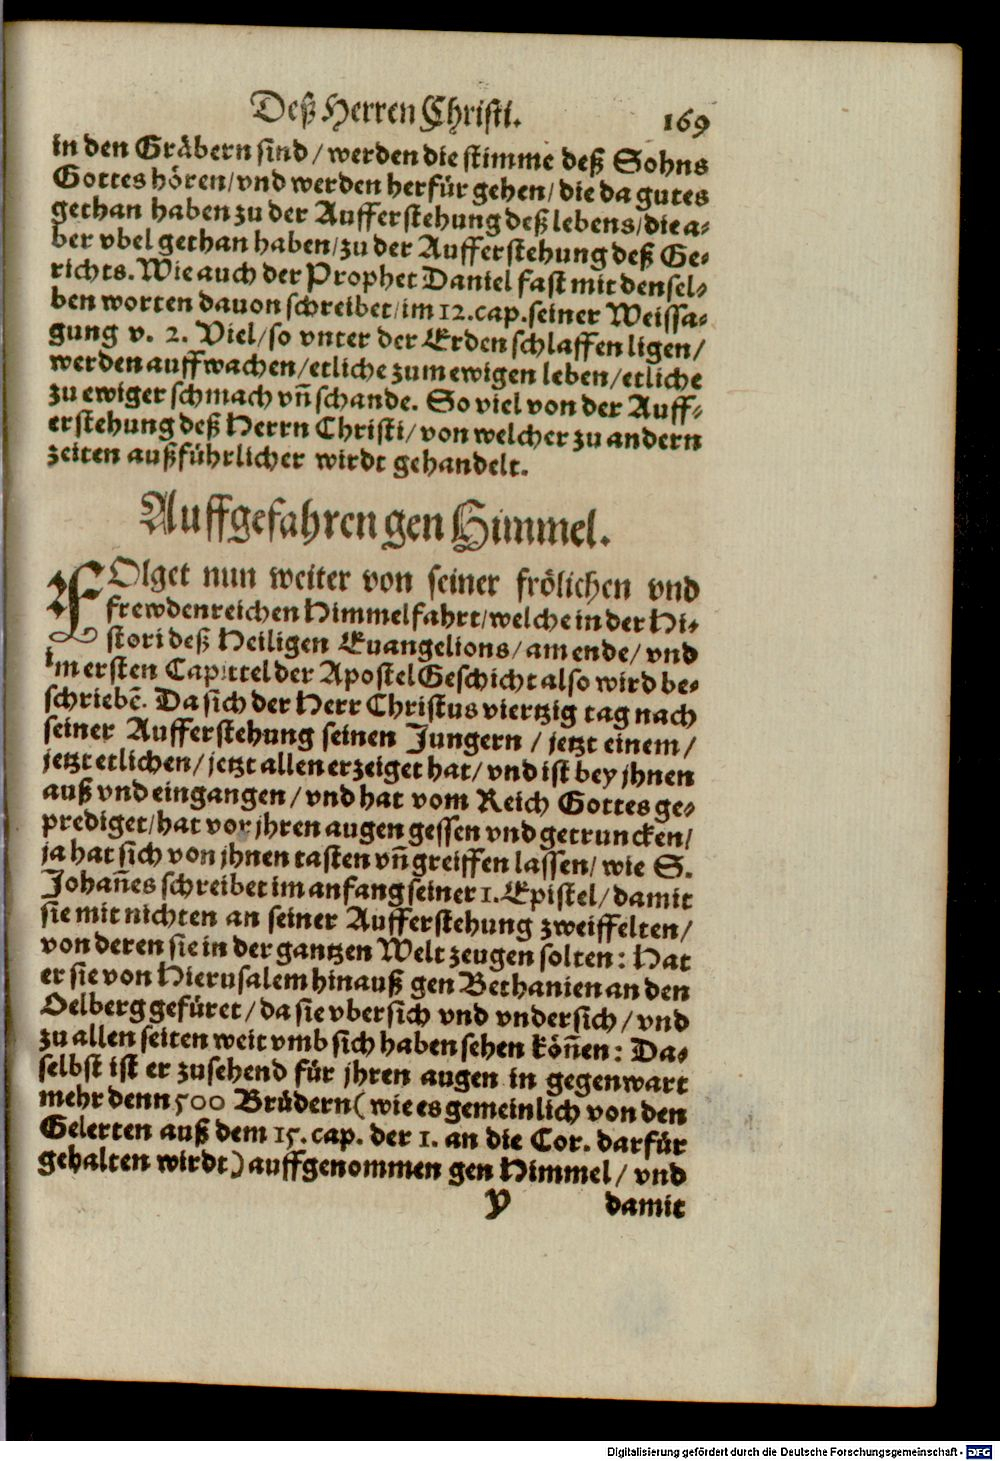 Deß Herren Christi.
169
in den Gräbern sind / werden die stimme deß Sohns
Gottes hören/ vnd werden herfür gehen/ die da gutes
gethan haben zu der Aufferstehung deß lebens/ die a-
ber vbel gethan haben/ zu der Aufferstehung deß Ge-
richts. Wie auch der Prophet Daniel fast mit den sel-
ben worten dauon schreibet/ im 12. cap. seiner Weissa-
gung v. 2. Viel/ so vnter der Erden schlaffen ligen/
werden auffwachen/ etliche zum ewigen leben/ etliche
zu ewiger schmach vñ schande. So viel von der Auff-
erstehung deß Herrn Christi/ von welcher zu andern
zeiten außführlicher wirdt gehandelt.
Auffgefahren gen Himmel.
FOlget nun weiter von seiner frölichen vnd
frewdenreichen Himmelfahrt/ welche in der Hi-
stori deß Heiligen Euangelions/ am ende/ vnd
im ersten Capittel der Apostel Geschicht also wird be-
schriebẽ. Da sich der Herr Christus viertzig tag nach
seiner Aufferstehung seinen Jungern / jetzt einem/
jetzt etlichen/ jetzt allen erzeiget hat/ vnd ist bey jhnen
auß vnd eingangen/ vnd hat vom Reich Gottes ge-
prediget/ hat vor jhren augen gessen vnd getruncken/
ja hat sich von jhnen tasten vñ greiffen lassen/ wie S.
Johañes schreibet im anfang seiner 1. Epistel/ damit
sie mit nichten an seiner Aufferstehung zweiffelten/
von deren sie in der gantzen Welt zeugen solten: Hat
er sie von Hierusalem hinauß gen Bethanien an den
Oelberg gefüret/ da sie vbersich vnd vndersich/ vnd
zu allen seiten weit vmb sich haben sehen köñen: Da-
selbst ist er zusehend für jhren augen in gegenwart
mehr denn 500 Brüdern (wie es gemeinlich von den
Gelerten auß dem 15. cap. der 1. an die Cor. darfür
gehalten wirdt) auffgenommen gen Himmel/ vnd
Y damit
Digitalisierung gefördert durch die Deutsche Forschungsgemeinschaft - DFG